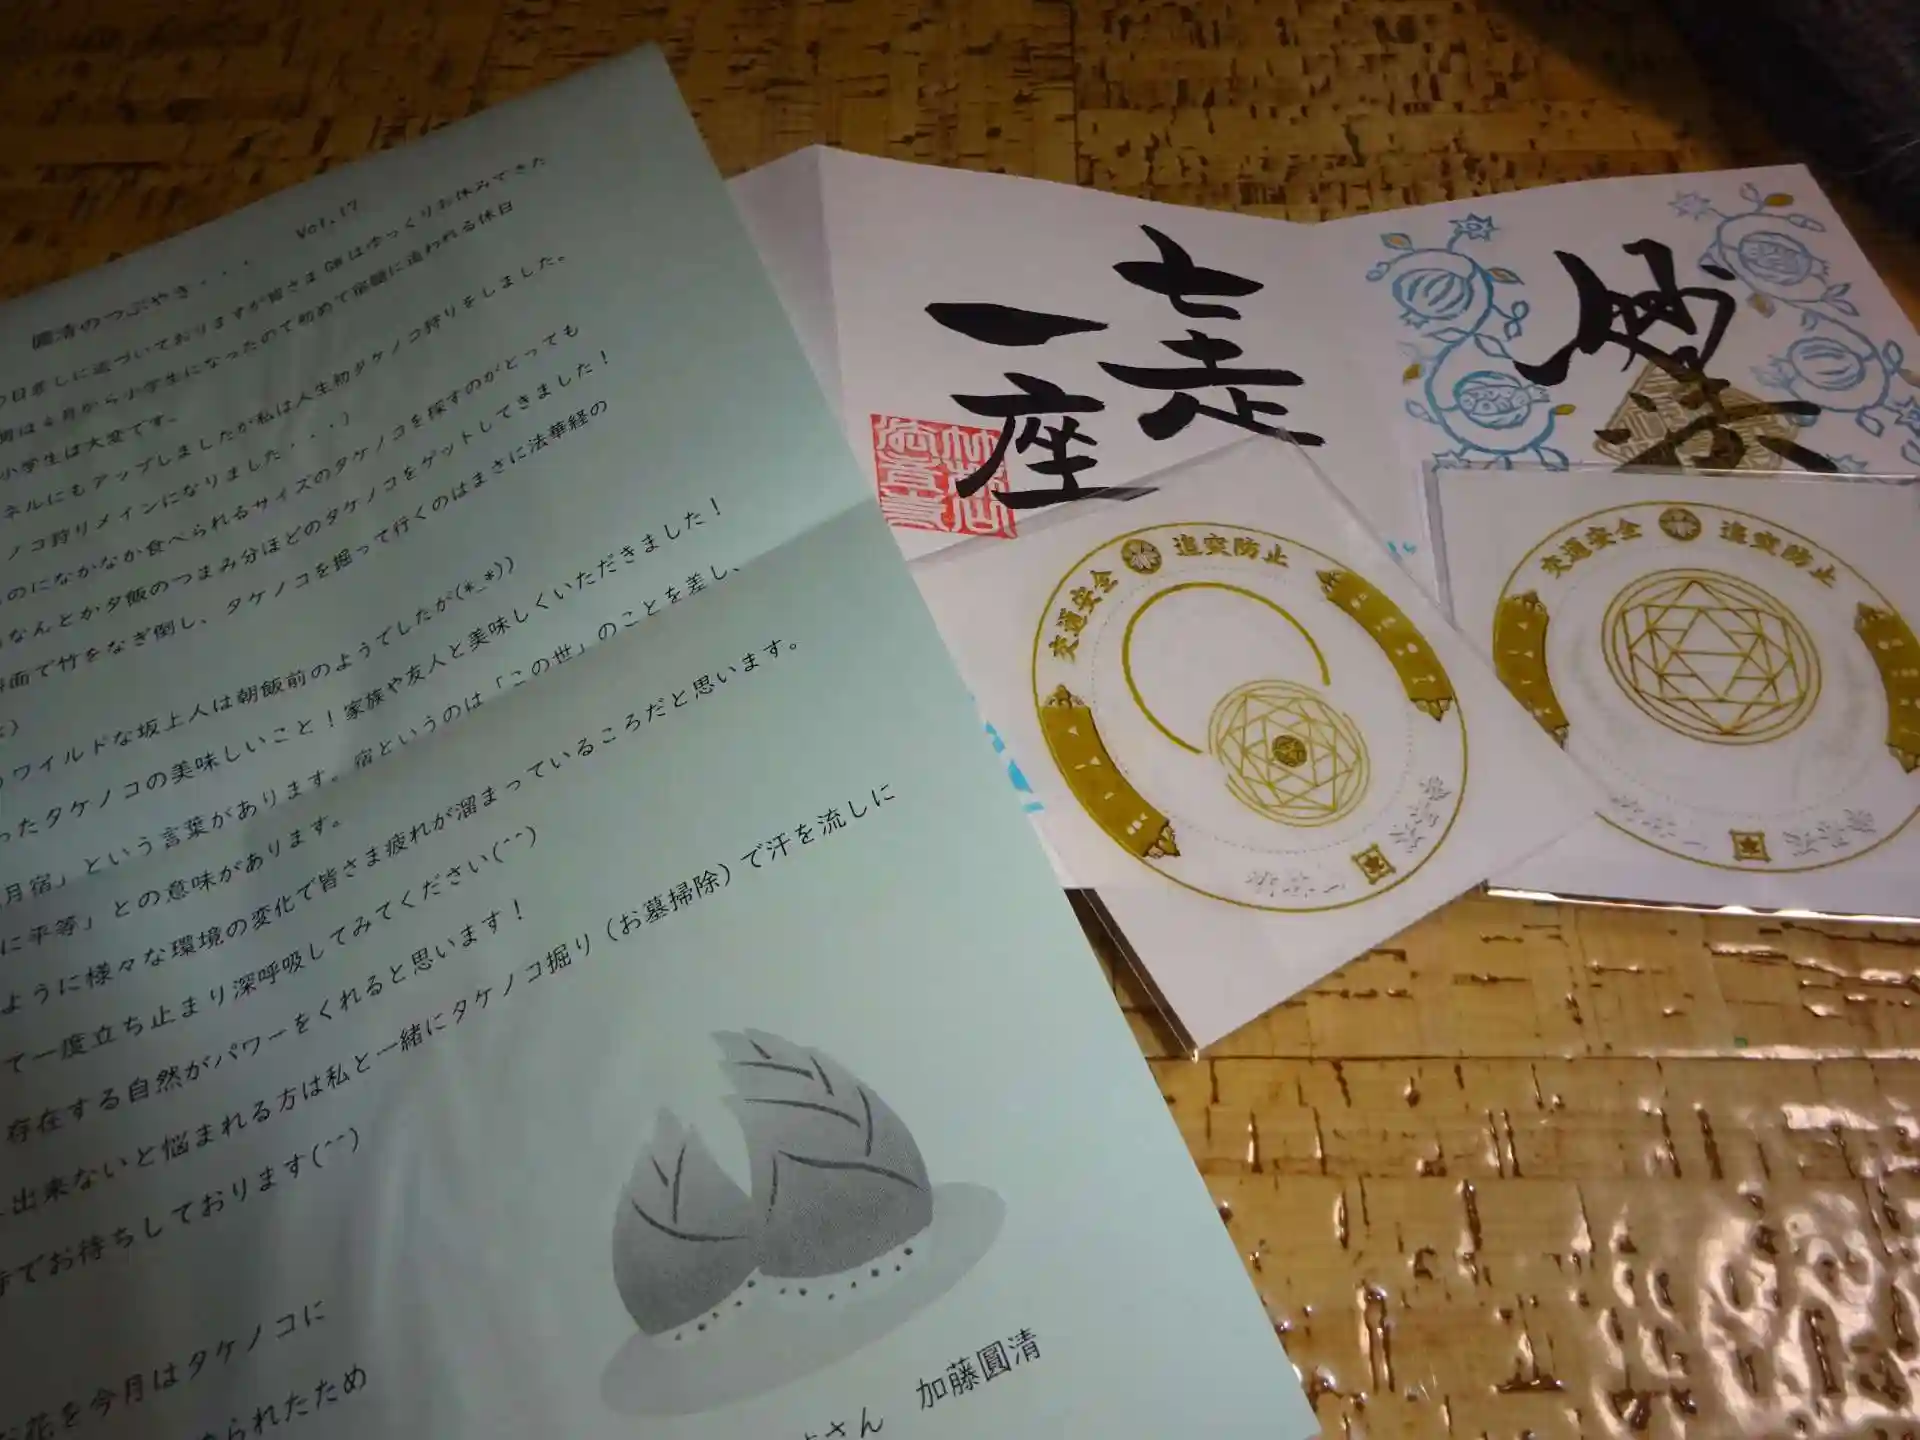 圓清のつぶやき・・・ Vol.17
日差しに近づいておりますが皆さまGWはゆっくりお休みできた
は4月から小学生になったので初めて宿題に追われる休日
小学生は大変です。
ネルにもアップしましたが私は人生初タケノコ狩りをしました。
ノコ狩りメインになりました・・・)
のになかなか食べられるサイズのタケノコを探すのがとっても
なんとか夕飯のつまみ分ほどのタケノコをゲットしてきました!
面で竹をなぎ倒し、タケノコを掘って行くのはまさに法華経の
ワイルドな坂上人は朝飯前のようでしたが(*_*))
ったタケノコの美味しいこと!家族や友人と美味しくいただきました!
月宿」という言葉があります。宿というのは「この世」のことを差し、
に平等」との意味があります。
ように様々な環境の変化で皆さま疲れが溜まっているころだと思います。
て一度立ち止まり深呼吸してみてください(^^)
存在する自然がパワーをくれると思います!
出来ないと悩まれる方は私と一緒にタケノコ掘り(お墓掃除)で汗を流しに
寺でお待ちしております(^^)
お花を今月はタケノコに
られたため
さん 加藤圓清
妙法
七走
一座
交通安全 追突防止
交通安全 追突防止